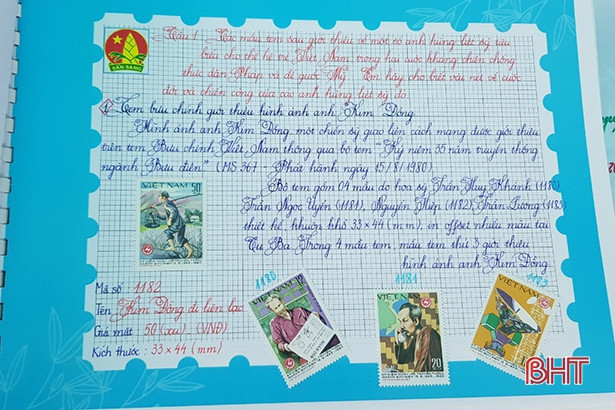 SẴN SÀNG
Câu 1: Các mẫu tem sau giới thiệu về một số anh hùng liệt sỹ tiêu
biểu cho thế hệ trẻ Việt Nam trong hai cuộc kháng chiến chống
thực dân Pháp và đế quốc Mỹ. Em hãy cho biết vài nét về cuộc
đời và chiến công của các anh hùng liệt sỹ đó.
1 Tem bưu chính giới thiệu hình ảnh anh Kim Đồng.
Hình ảnh anh Kim Đồng, một chiến sỹ giao liên cách mạng được giới thiệu
trên tem Bưu chính Việt Nam thông qua bộ tem "Kỷ niệm 35 năm truyền thống
ngành Bưu điện" (MS 367 - Phát hành ngày 15/8/1980).
Bộ tem gồm 04 mẫu do họa sỹ Trần Huy Khánh (1180)
Trần Ngọc Uyển (1181), Nguyễn Hiệp (1182), Trần Lương (1183)
thiết kế, khuôn khổ 33x44 (mm), in offset nhiều màu tại
Cu Ba. Trong 4 mẫu tem, mẫu tem thứ 3 giới thiệu
hình ảnh anh Kim Đồng.
VIỆT NAM
50
Mã số 1182
Tên Kim Đồng đi liên lạc
Giá mặt 50 (xu) (VNĐ)
Kích thước : 33 x 44 (mm)
1180
VIỆT NAM 12
1181
VIỆT NAM
20
1183
VIỆT NAM
BHT